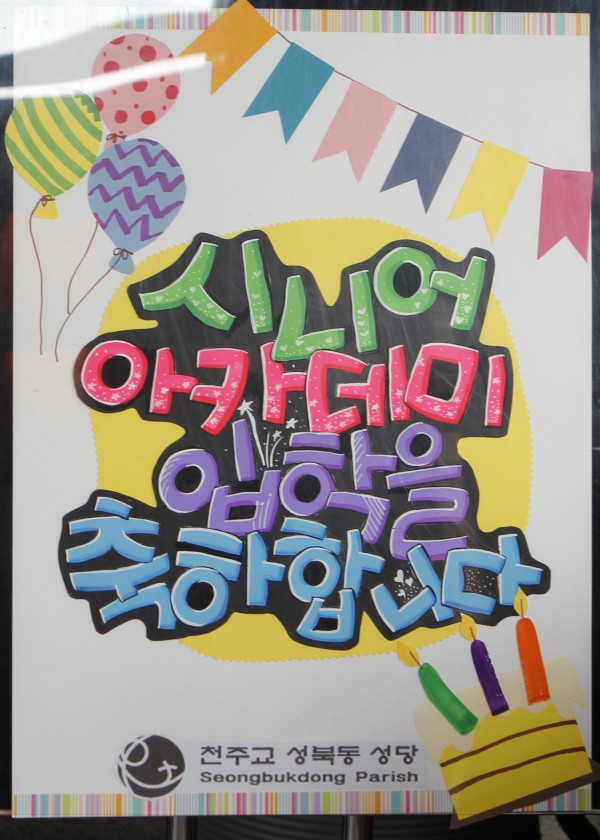 시니어
아카데미
입학을
축하합니다
천주교 성북동 성당
Seongbukdong Parish